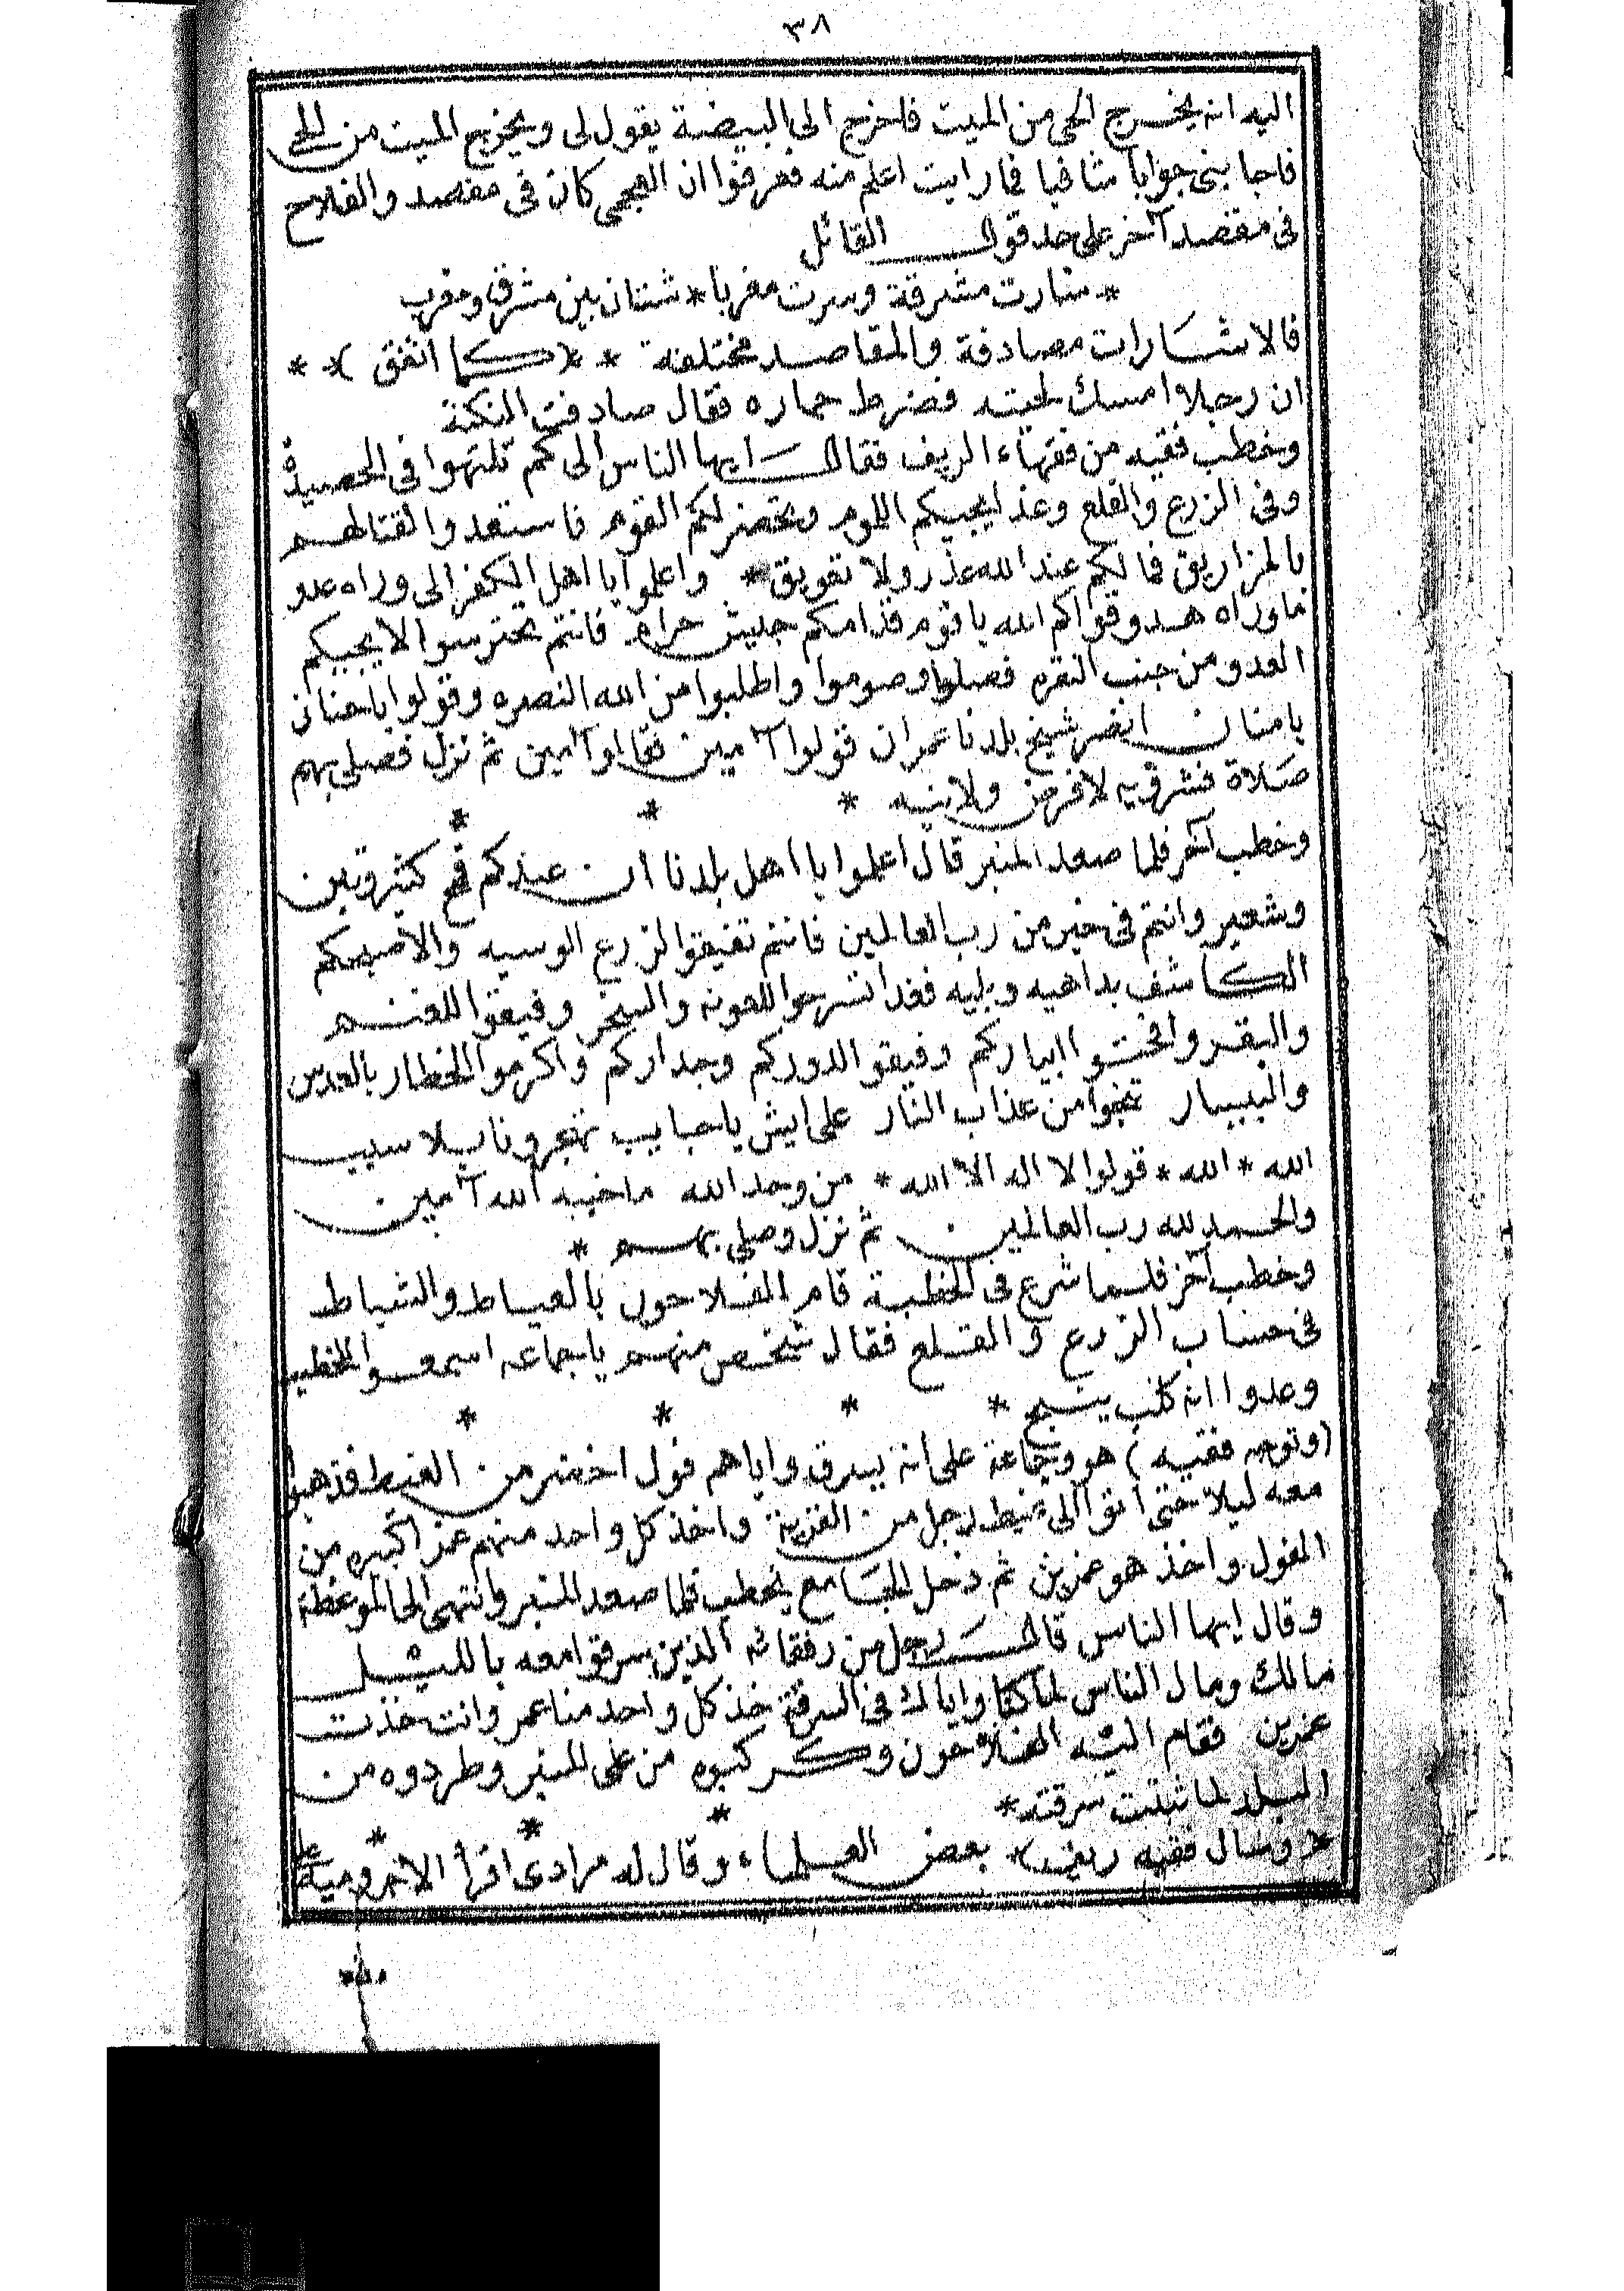 ٣٨
اليه انه يخرج الحى من الميت فاخرج الى البيضة يقول لى ويخرج الميت من الحى
فاجابنى جوابا شافيا فما رايت اعلم منه فعرفوا ان العجمى كان فى مقصد والفلاح
فى مقصد آخر على حد قول القائل
* سارت مشرقة وسرت مغربا * شتان بين مشرق ومغرب
فالاشارات مصادفة والمقاصد مختلفة * (كما اتفق) * *
ان رجلا امسك لحيته فضرط حماره فقال صادفت النكتة
وخطب فقيه من فقهاء الريف فقال ايها الناس الى كم تلتهوا فى الحصيدة
وفى الزرع والقلع وغدا يجيكم اللوم ويحضر لكم القوم فاستعدوا لقتالهم
بالمزاريق فما لكم عند الله عذر ولا تعويق * واعلموا يا اهل الكفر الى وراه عدو
ما وراه هدو قواكم الله يا قوم قدامكم جليش حرام فانتم يحترسوا لا يجيكم
العدو من جنب النقره فصلوا وصوموا واطلبوا من الله النصره وقولوا يا حنان
يا منان انصر شيخ بلدنا عمران قولوا آمين فقالوا آمين ثم نزل فصلى بهم
صلاة فشرويه لا فرض ولا نيه * * *
وخطب آخر فلما صعد المنبر قال اعلموا يا اهل بلدنا ان عندكم قمح كثير وتبن
وشعير وانتم فى خير من رب العالمين فانتم تفيقوا لزرع الوسيه والا صبحكم
الكاشف بداهيه وبليه فغدا تسرحوا للعونه والسخر وفيقوا للغنم
والبقر وافحتوا ابياركم وفيقوا لدوركم وجداركم واكرموا الخطار بالعدس
والبيسار تنجوا من عذاب النار على ايش يا حبايب تهجرونا بلا سبب
الله * الله * قولوا لا اله الا الله * من وحد الله ما خيبه الله آمين
والحمد لله رب العالمين ثم نزل وصلى بهم *
وخطب آخر فلما شرع فى الخطبة قام الفلاحون بالعياط والشياط
فى حساب الزرع والقلع فقال شخص منهم يا جماعه اسمعوا الخطيب
وعدوا انه كلب ينبح * * * *
(وتوجه فقيه) هو وجماعة على انه يسرق واياهم فول اخضر من الغيط فذهبوا
معه ليلا حتى اتوا الى غيط رجل من القرية واخذ كل واحد منهم غمر اكبيره من
الفول واخذ هو غمرين ثم دخل الجامع يخطب فلما صعد المنبر وانتهى الى الموعظة
وقال ايها الناس قال رجل من رفقائه الذين سرقوا معه بالليل
مالك ومال الناس لما كنا واياك فى السرقة خذ كل واحد منا غمر وانت خذت
غمرين فقام اليه الفلاحون وكركبوه من على المنبر وطردوه من
البلد لما ثبتت سرقته *
(وسال فقيه ريفى) بعض العلماء وقال له مرادى اقرأ الاجرومية